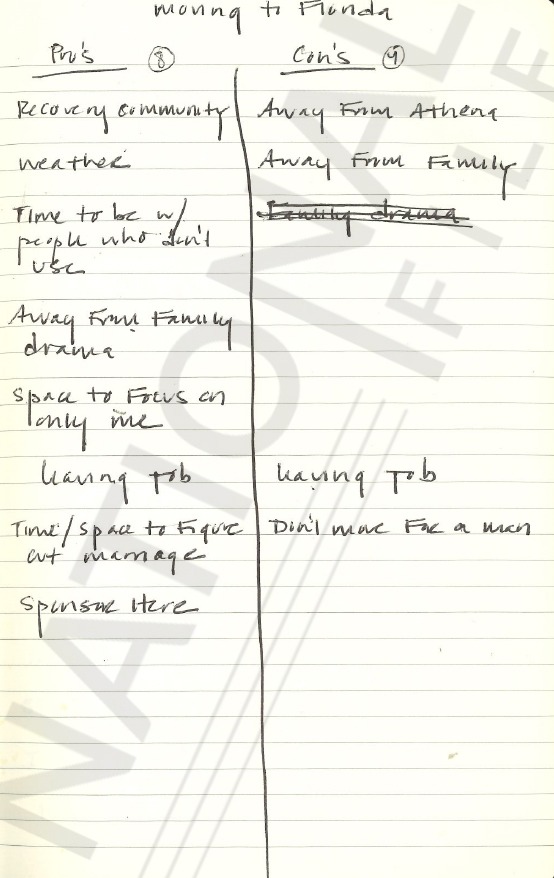 moving to Florida
Pro's 8
Con's 4
Recovery community
weather
Time to be w/
people who don't
use
Away From Family
drama
Space to Focus on
only me
Leaving Job
Time/Space to Figure
out marriage
Sponsor Here
Away From Athena
Away From Family
Family drama
Leaving Job
Don't move For a man
NATIONAL
FILE